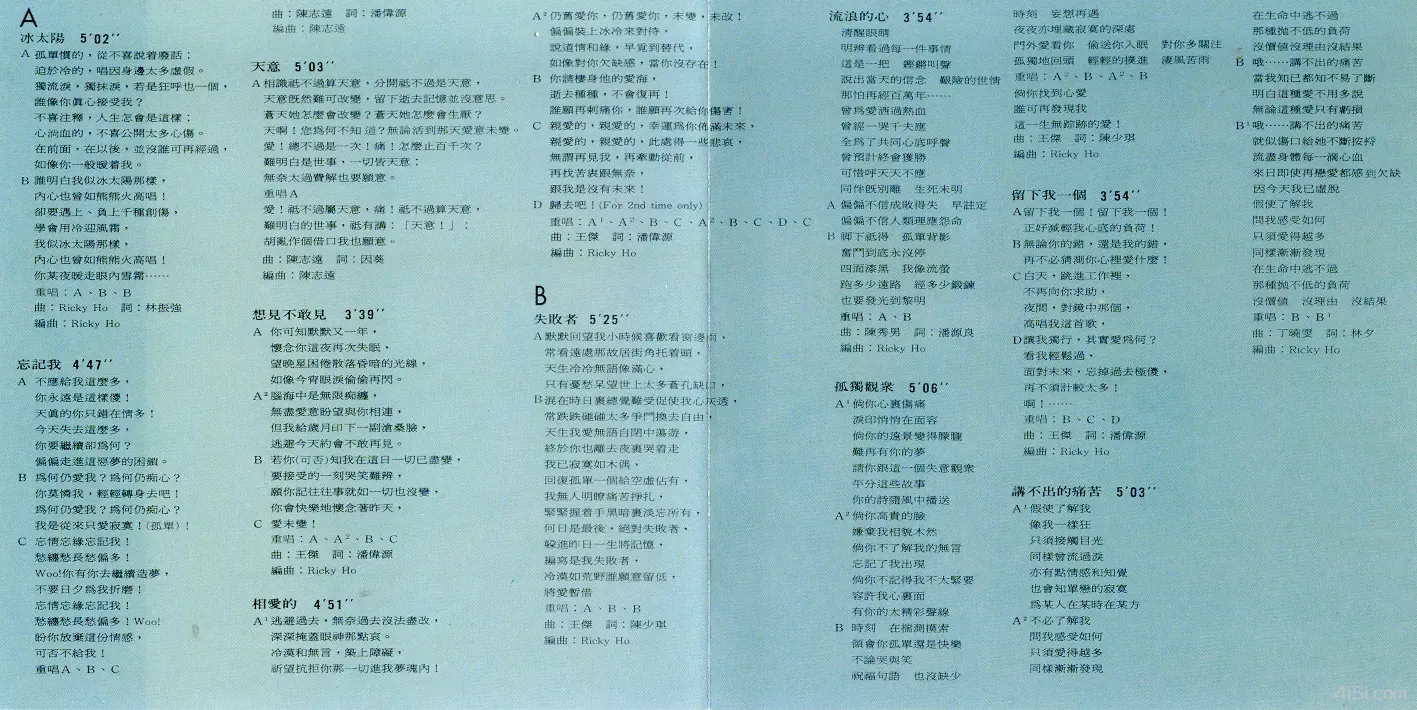 A
冰太陽 5'02''
A 孤單慣的，從不喜說着廢話；
迫於冷的，唱因身邊太多虛假。
獨流淚，獨抹淚，若是狂呼也一個，
誰像你眞心接受我？
不喜注釋，人生怎會是這樣；
心淌血的，不喜公開太多心傷。
在前面，在以後，並沒誰可再經過，
如像你一般暖着我。
B 誰明白我似冰太陽那樣，
內心也曾如熊熊火高唱！
卻要遇上、負上千種創傷，
學會用冷迎風霜，
我似冰太陽那樣，
內心也曾如熊熊火高唱！
你某夜暖走眼內雪霜……
重唱：A、B、B
曲：Ricky Ho 詞：林振強
編曲：Ricky Ho
忘記我 4'47''
A 不應給我這麼多，
你永遠是這樣傻！
天眞的你只錯在情多！
今天失去這麼多，
你要繼續卻爲何？
偏偏走進這惡夢的困鎖。
B 爲何仍愛我？爲何仍痴心？
你莫憐我，輕輕轉身去吧！
爲何仍愛我？爲何仍痴心？
我是從來只愛寂寞！(孤單)！
C 忘情忘緣忘記我！
愁纏愁長愁偏多！
Woo!你有你去繼續造夢，
不要日夕爲我折磨！
忘情忘緣忘記我！
愁纏愁長愁偏多！Woo!
盼你放棄這份情感，
可否不給我！
重唱A、B、C
曲：陳志遠 詞：潘偉源
編曲：陳志遠
天意 5'03''
A 相識祇不過算天意，分開祇不過是天意，
天意旣然難可改變，留下逝去記憶並沒意思。
蒼天她怎麼會改變？蒼天她怎麼會生厭？
天啊！您爲何不知道？無論活到那天愛意未變。
愛！總不過是一次！痛！怎麼止百千次？
難明白是世事，一切皆天意；
無奈太過費解也要願意。
重唱A
愛！祇不過屬天意，痛！祇不過算天意，
難明白的世事，祇有講：「天意！」；
胡亂作個借口我也願意。
曲：陳志遠 詞：因葵
編曲：陳志遠
想見不敢見 3'39''
A 你可知默默又一年，
懷念你這夜再次失眠，
望晚星困倦散落昏暗的光線，
如像今宵眼淚偷偷再閃。
A²腦海中是無限痴纏，
無盡愛意盼望與你相連，
但我給歲月印下一副滄桑臉，
逃避今天約會不敢再見。
B 若你(可否)知我在這日一切已盡變，
要接受的一刻哭笑難辨，
願你記往往事就如一切也沒變，
你會快樂地懷念著昨天，
C 愛未變！
重唱：A、A²、B、C
曲：王傑 詞：潘偉源
編曲：Ricky Ho
相愛的 4'51''
A¹逃避過去，無奈過去沒法盡改，
深深掩蓋眼神那點哀。
冷漠和無言，築上障礙，
祈望抗拒你那一切進我夢魂內！
A²仍舊愛你，仍舊愛你，未變，未改！
偏偏裝上冰冷來對待，
說道情和緣，早覓到替代，
如像對你欠缺感，當你沒存在！
B 你請棲身他的愛海，
逝去種種，不會復再！
誰願再刺痛你，誰願再次給你傷害！
C 親愛的，親愛的，幸運爲你佈滿未來，
親愛的，親愛的，此處得一些悲哀，
無謂再見我，再牽動從前，
再找苦裏跟無奈，
跟我是沒有未來！
D 歸去吧！(For 2nd time only)
重唱：A¹、A²、B、C、A²、B、C、D、C
曲：王傑 詞：潘偉源
編曲：Ricky Ho
B
失敗者 5'25''
A 默默回望我小時候喜歡看窗邊雨，
常看遠處那故居街角托着頭，
天生冷冷無語像滿心，
只有憂愁呆望世上太多蒼孔缺口，
B混在時日裏總覺難受促使我心灰透，
常跌跌碰碰太多爭鬥換去自由，
天生我愛無語自閉中蕩遊，
終於你也離去夜裏哭着走
我已寂寞如木偶，
回復孤單一個給空虛佔有，
我無人明瞭痛苦掙扎，
緊緊握着手黑暗裏淡忘所有，
何日是最後，絕對失敗者，
躱進昨日一生將記憶，
編寫是我失敗者，
冷漠如荒野誰願意留低，
將愛暫借
重唱：A、B、B
曲：王傑 詞：陳少琪
編曲：Ricky Ho
流浪的心 3'54''
清醒眼睛
明辨看過每一件事情
這是一把 鏗鏘叫聲
說出當天的信念 艱險的世情
那怕再經百萬年……
曾爲愛洒過熱血
曾經一哭千夫應
全爲了共同心底呼聲
曾預計終會獲勝
可惜呼天天不應
同伴旣別離 生死未明
A 偏偏不信成敗得失 早註定
偏偏不信人類理應怨命
B 脚下祇得 孤單背影
奮鬥到底永沒停
四面漆黑 我像流螢
跑多少遠路 經多少鍛鍊
也要發光到黎明
重唱：A、B
曲：陳秀男 詞：潘源良
編曲：Ricky Ho
孤獨觀衆 5'06''
A¹倘你心裏傷痛
淚印悄悄在面容
倘你的遠景變得朦朧
難再有你的夢
請你跟這一個失意觀衆
平分這些故事
你的詩隨風中播送
A²倘你高貴的臉
嫌棄我相貌木然
倘你不了解我的無言
忘記了我出現
倘你不記得我不太緊要
容許我心裏面
有你的太精彩聲線
B 時刻 在揣測摸索
領會你孤單還是快樂
不論哭與笑
祝福句語 也沒缺少
時刻 妄想再遇
夜夜亦埋藏寂寞的深處
門外愛看你 偷送你入眠 對你多關注
孤獨地回頭 輕輕的撲進 淒風苦雨
重唱：A²、B、A²、B
倘你找到心愛
誰可再發現我
這一生無踪跡的愛！
曲：王傑 詞：陳少琪
編曲：Ricky Ho
留下我一個 3'54''
A留下我一個！留下我一個！
正好減輕我心底的負荷！
B無論你的錯，還是我的錯，
再不必猜測你心裡愛什麼！
C白天，跳進工作裡，
不再向你求助，
夜間，對鏡中那個，
高唱我這首歌，
D讓我獨行，其實愛爲何？
看我輕鬆過，
面對未來，忘掉過去極傻，
再不須計較太多！
啊！……
重唱：B、C、D
曲：王傑 詞：潘偉源
編曲：Ricky Ho
講不出的痛苦 5'03''
A¹假使了解我
像我一樣狂
只須接觸目光
同樣曾流過淚
亦有點情感和知覺
也會知單戀的寂寞
爲某人在某時在某方
A²不必了解我
問我感受如何
只須愛得越多
同樣漸漸發現
在生命中逃不過
那種抛不低的負荷
沒價值沒理由沒結果
B 哦……講不出的痛苦
當我知已都知不易了斷
明白這種愛不用多說
無論這種愛只有虧損
B¹哦……講不出的痛苦
就似傷口給她不斷按捋
流盡身體每一滴心血
來日即使再戀愛都感到欠缺
因今天我已虛脫
假使了解我
問我感受如何
只須愛得越多
同樣漸漸發現
在生命中逃不過
那種抛不低的負荷
沒價值 沒理由 沒結果
重唱：B、B¹
曲：丁曉雯 詞：林夕
編曲：Ricky Ho
4t5i.com